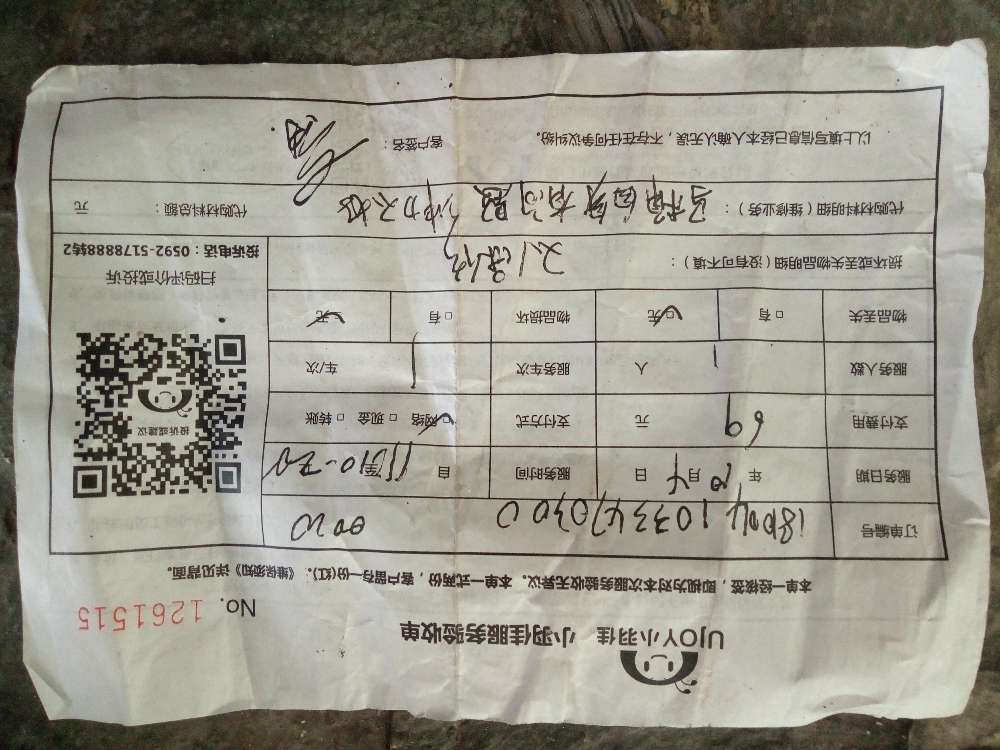 UJOY小羽佳 小羽佳服务验收单
No. 1261515
本单一经核签，即视为对本次服务验收无异议。本单一式两份，客户留存一份(红)。《维保须知》详见背面。
订单编号
服务日期 年 10月4日 服务时间 自
支付费用 69 元 支付方式 □网络 □现金 □转账
服务人数 1 人 服务车次 1 车/次
物品丢失 □有 □无 物品损坏 □有 □无
损坏或丢失物品明细（没有可不填）：
代购材料明细（维修业务）：马桶自身有问题 冲力不好 代购材料总额： 元
以上填写信息已经本人确认无误，不存在任何争议纠纷。 客户签名：
投诉或建议
扫码评价或投诉
投诉电话：0592-5178888转2